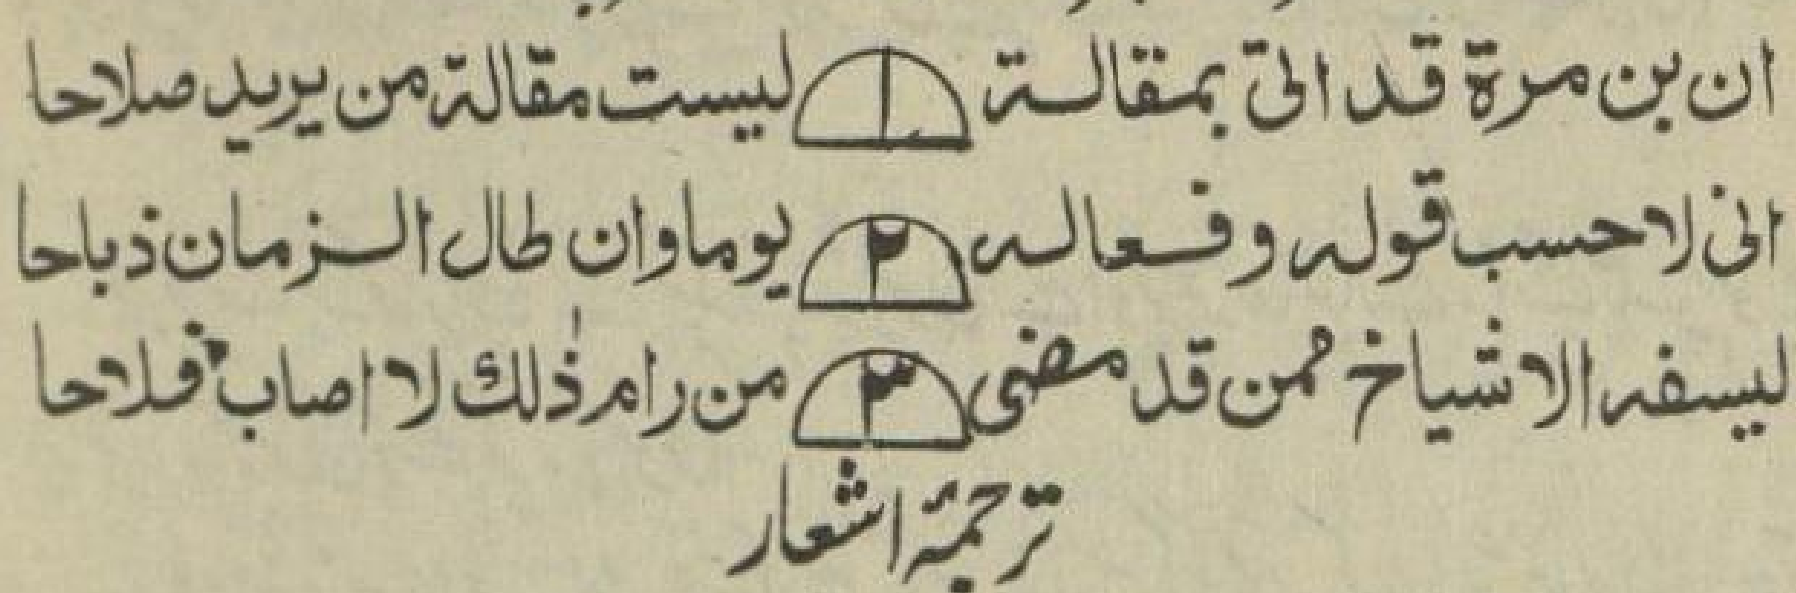 ان بن مرة قد اتى بمقالة ١ ليست مقالة من يريد صلاحا
انى لاحسب قوله وفعاله ٢ يوما وان طال الزمان ذباحا
ليسفه الاشياخ ممن قد مضى ٣ من رام ذٰلك لا اصاب فلاحا
ترجمۂ اشعار